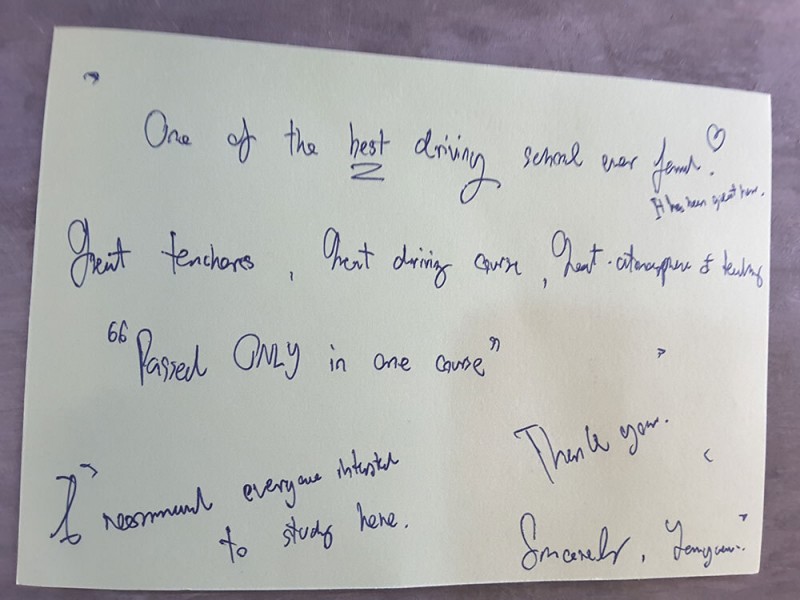 One of the best driving school ever found. ♡
It has been great here.
Great teachares , Great driving course , Great atmosphere & teaching
"Passed ONLY in one course"
Thank you.
I recommend everyone intersted
to study here.
Sincerely,